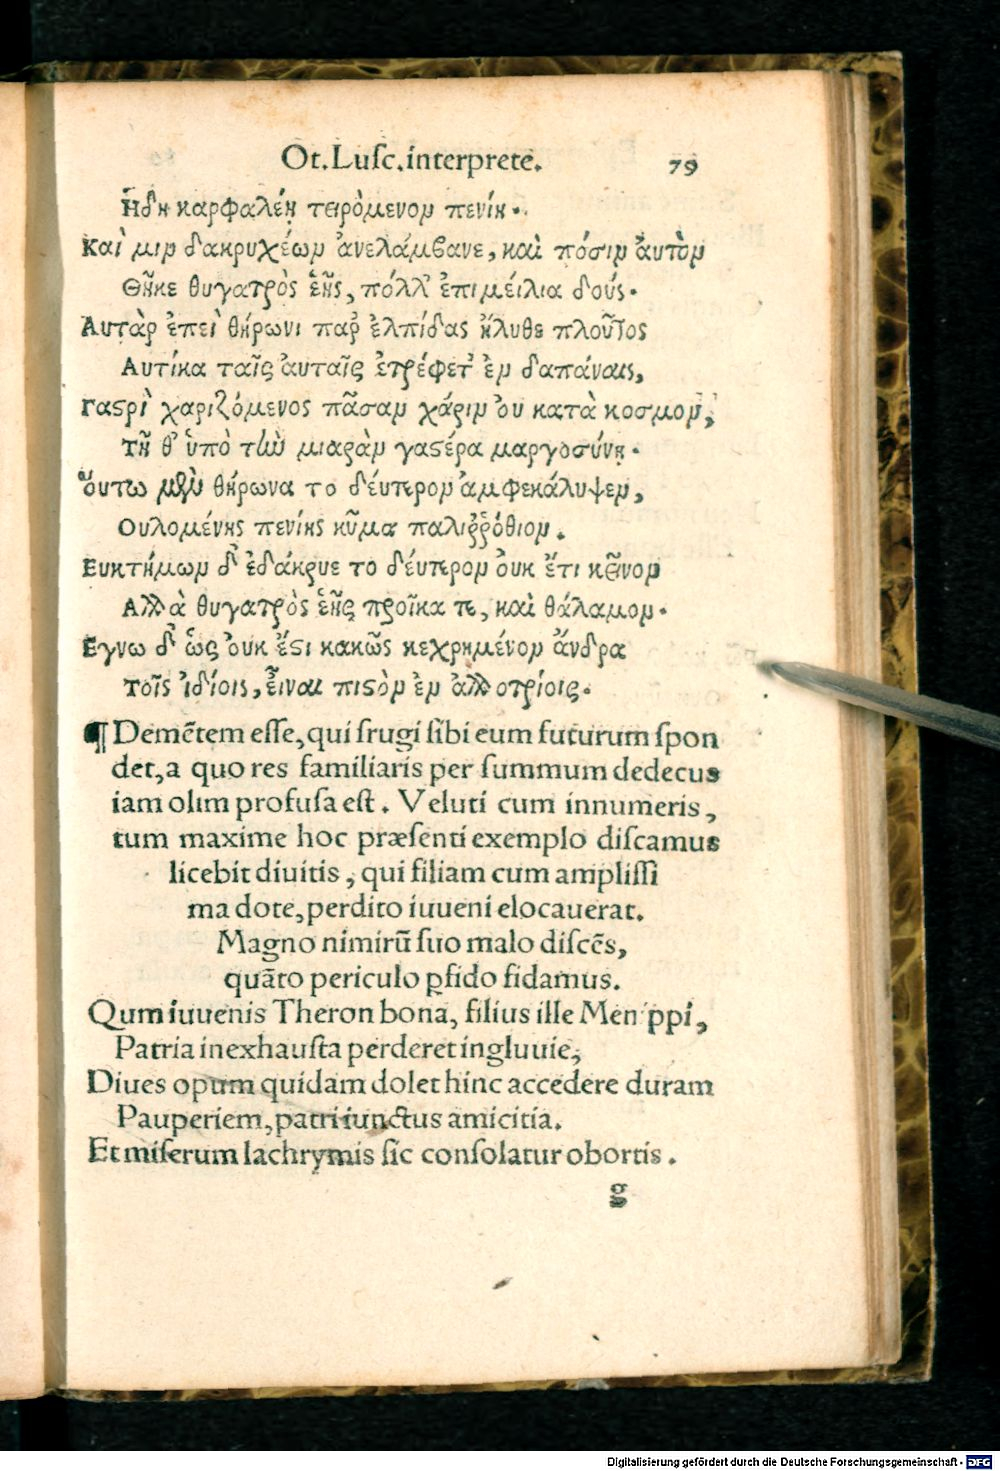 Ot. Luſc. interprete. 79
Ἤδη καρφαλέῃ τειρόμενον πενίη.
Καὶ μιν δακρυχέων ἀνελάμβανε, καὶ πόσιν ἀυτὸν
Θῆκε θυγατρὸς ἑῆς, πόλλ' ἐπιμείλια δούς.
Αυτὰρ ἐπεὶ θήρωνι παρ' ἐλπίδας ἤλυθε πλοῦτος
Αυτίκα ταῖς ἀυταῖς ἐτρέφετ' ἐν δαπάναις,
Γαϛρὶ χαριζόμενος πᾶσαν χάριν ὀυ κατὰ κοσμον,
Τῆ θ' ὑπὸ τὼ μιαρὰν γαϛέρα μαργοσύνῃ.
Ὅυτω μὲν θήρωνα το δέυτερον ἀμφεκάλυψεν,
Ουλομένης πενίης κῦμα παλιῤῥόθιον.
Ευκτήμων δ' ἐδάκρυε το δέυτερον ὀυκ ἔτι κεῖνον
Αλλὰ θυγατρὸς ἑῆς προῖκα τε, καὶ θάλαμον.
Εγνω δ' ὡς ὀυκ ἔϛι κακῶς κεχρημένον ἄνδρα
Τοῖς ἰδίοις, εἶναι πιϛὸν ἐν ἀλλοτρίοις.
¶ Demētem eſſe, qui frugi ſibi eum futurum ſpon
det, a quo res familiaris per ſummum dedecus
iam olim profuſa eſt. Veluti cum innumeris,
tum maxime hoc præſenti exemplo diſcamus
licebit diuitis, qui filiam cum ampliſſi
ma dote, perdito iuueni elocauerat.
Magno nimirū ſuo malo diſcēs,
quāto periculo ꝑfido fidamus.
Qum iuuenis Theron bona, filius ille Menippi,
Patria inexhauſta perderet ingluuie,
Diues opum quidam dolet hinc accedere duram
Pauperiem, patri iunctus amicitia.
Et miſerum lachrymis ſic conſolatur obortis.
g
Digitalisierung gefördert durch die Deutsche Forschungsgemeinschaft - DFG